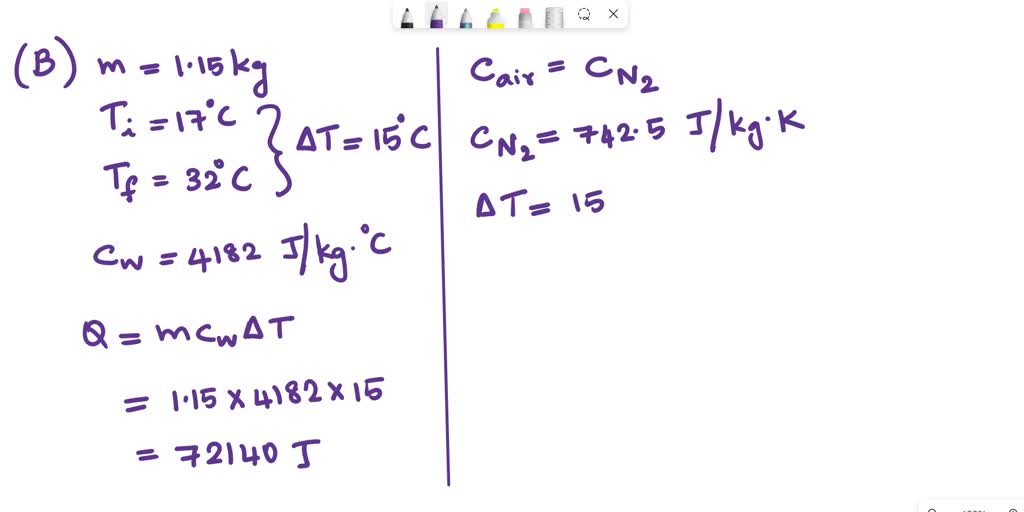 (B) m = 1.15 kg
Ti = 17°C
Tf = 32°C
ΔT = 15°C
Cw = 4182 J/kg.°C
Q = mCwΔT
= 1.15 × 4182 × 15
= 72140 J
Cair = CN2
CN2 = 742.5 J/kg.K
ΔT = 15